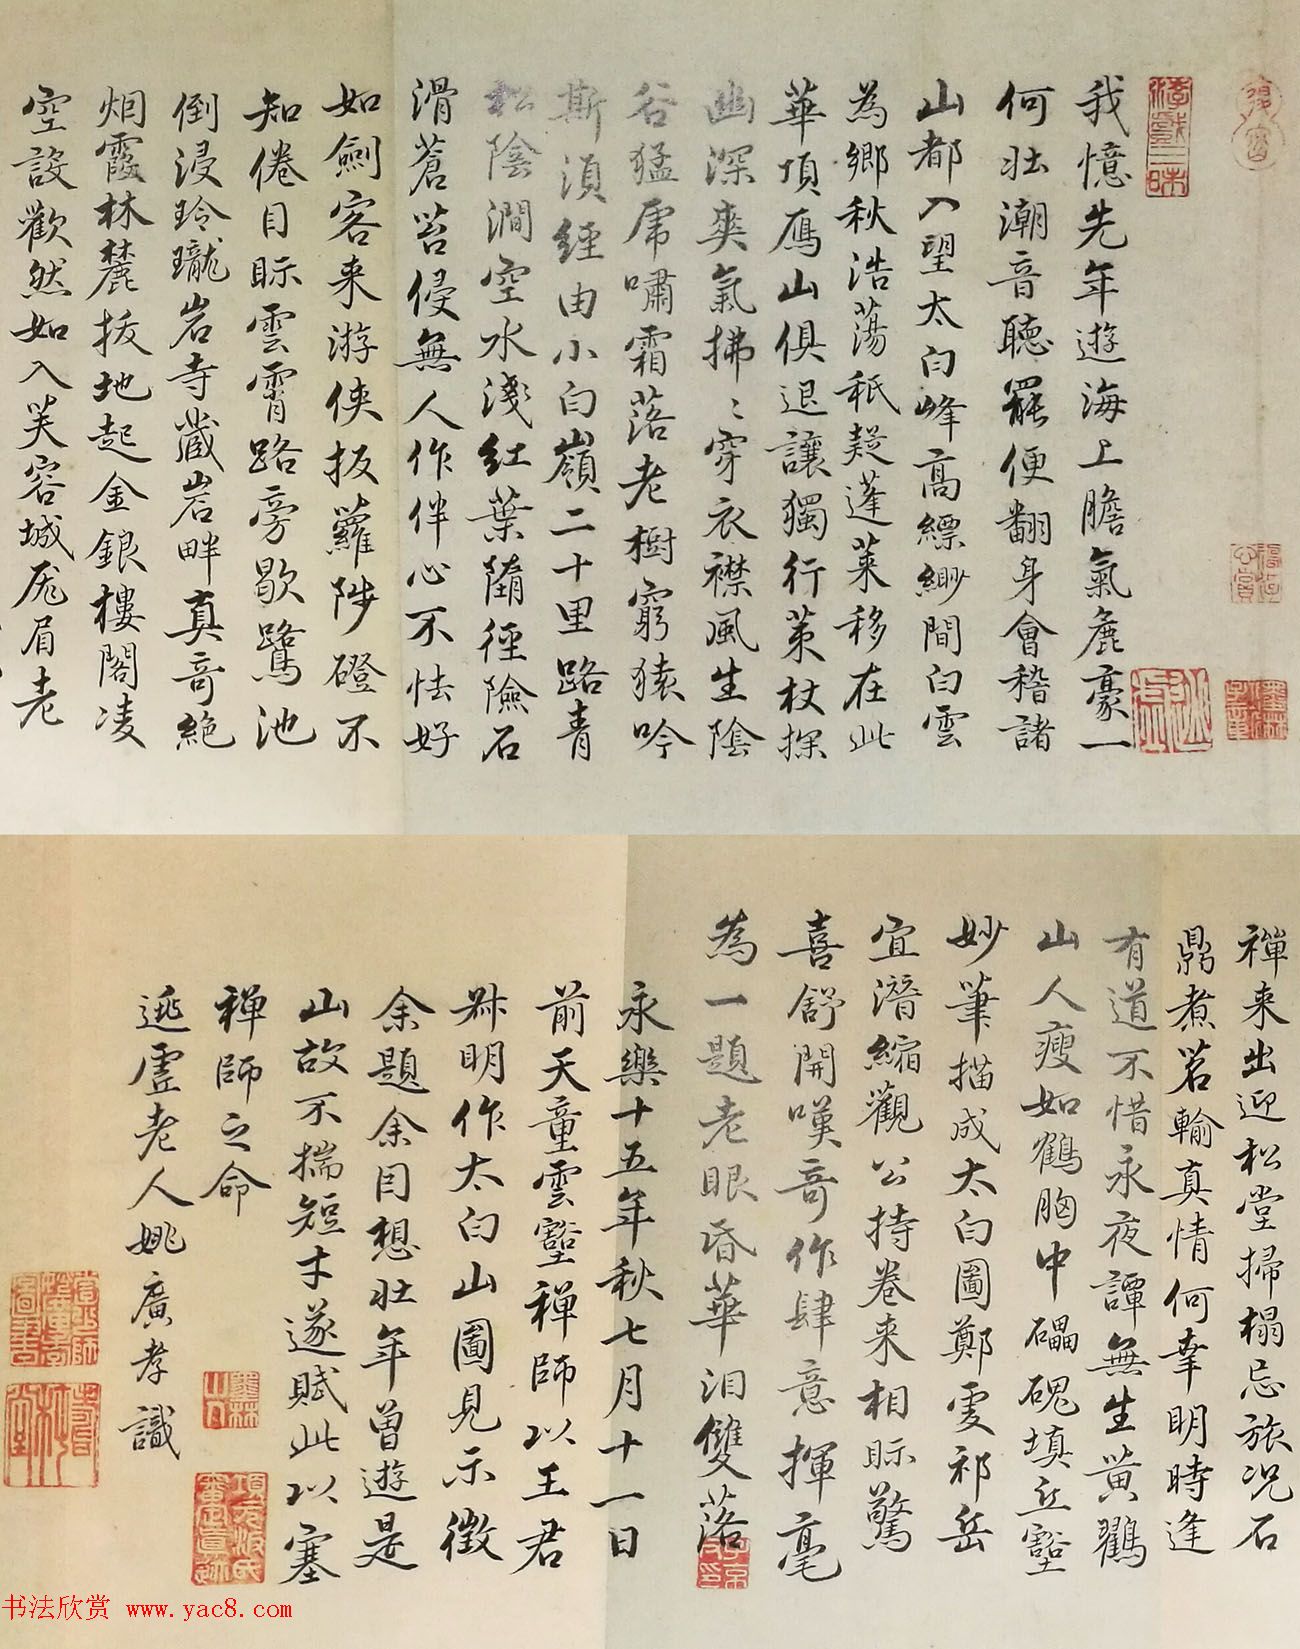 我憶先年遊海上膽氣麁豪一
何壯潮音聽罷便翻身會稽諸
山都入望太白峰高縹緲間白雲
為鄉秋浩蕩秖疑蓬萊移在此
華頂鴈山俱退讓獨行策杖探
幽深爽氣拂〻穿衣襟風生陰
谷猛虎嘯霜落老樹窮猿吟
斯須經由小白嶺二十里路青
松陰澗空水淺紅葉隨徑險石
滑蒼苔侵無人作伴心不怯好
如劍客来游俠扳蘿陟磴不
知倦目眎雲霄路旁歇鷺池
倒浸玲瓏岩寺藏岩畔真竒絶
烟霞林麓拔地起金銀樓閣凌
空設歡然如入芙容城厖眉老
禪来出迎松堂掃榻忘旅况石
鼎煮茗輸真情何幸明時逢
有道不惜永夜譚無生黄鶴
山人瘦如鶴胸中礧磈填丘壑
妙筆描成太白圖鄭虔祁岳
宜潛縮觀公持卷来相眎驚
喜舒開嘆竒作肆意揮毫
為一題老眼昏華泪雙落
永樂十五年秋七月十一日
前天童雲壑禪師以王君
叔明作太白山圖見示徵
余題余因想壯年曾遊是
山故不揣短才遂賦此以塞
禪師之命
逃虛老人姚廣孝識
书法欣赏 www.yac8.com